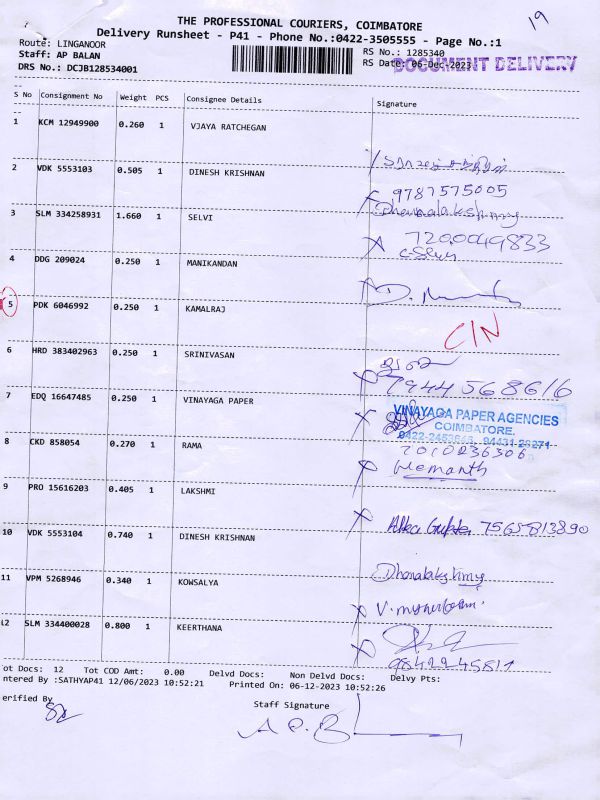 19
THE PROFESSIONAL COURIERS, COIMBATORE
Delivery Runsheet - P41 - Phone No.:0422-3505555 - Page No.:1
Route: LINGANOOR RS No.: 1285340
Staff: AP BALAN RS Date: 06-Dec-2023
DOCUMENT DELIVERY
DRS No.: DCJB128534001
S No Consignment No Weight PCS Consignee Details Signature
1 KCM 12949900 0.260 1 VJAYA RATCHEGAN
2 VDK 5553103 0.505 1 DINESH KRISHNAN
9787575005
Dhanalakshmy
3 SLM 334258931 1.660 1 SELVI
7200049833
4 DDG 209024 0.250 1 MANIKANDAN
5 PDK 6046992 0.250 1 KAMALRAJ
C/N
6 HRD 383402963 0.250 1 SRINIVASAN
7 EDQ 16647485 0.250 1 VINAYAGA PAPER
VINAYAGA PAPER AGENCIES
COIMBATORE.
8 CKD 858054 0.270 1 RAMA
Hemanth
9 PRO 15616203 0.405 1 LAKSHMI
Alka Gupta 7565813890
10 VDK 5553104 0.740 1 DINESH KRISHNAN
Dhanalakshmy
11 VPM 5268946 0.340 1 KOWSALYA
12 SLM 334400028 0.800 1 KEERTHANA
9842245811
ot Docs: 12 Tot COD Amt: 0.00 Delvd Docs: Non Delvd Docs: Delvy Pts:
ntered By :SATHYAP41 12/06/2023 10:52:21 Printed On: 06-12-2023 10:52:26
erified By Staff Signature